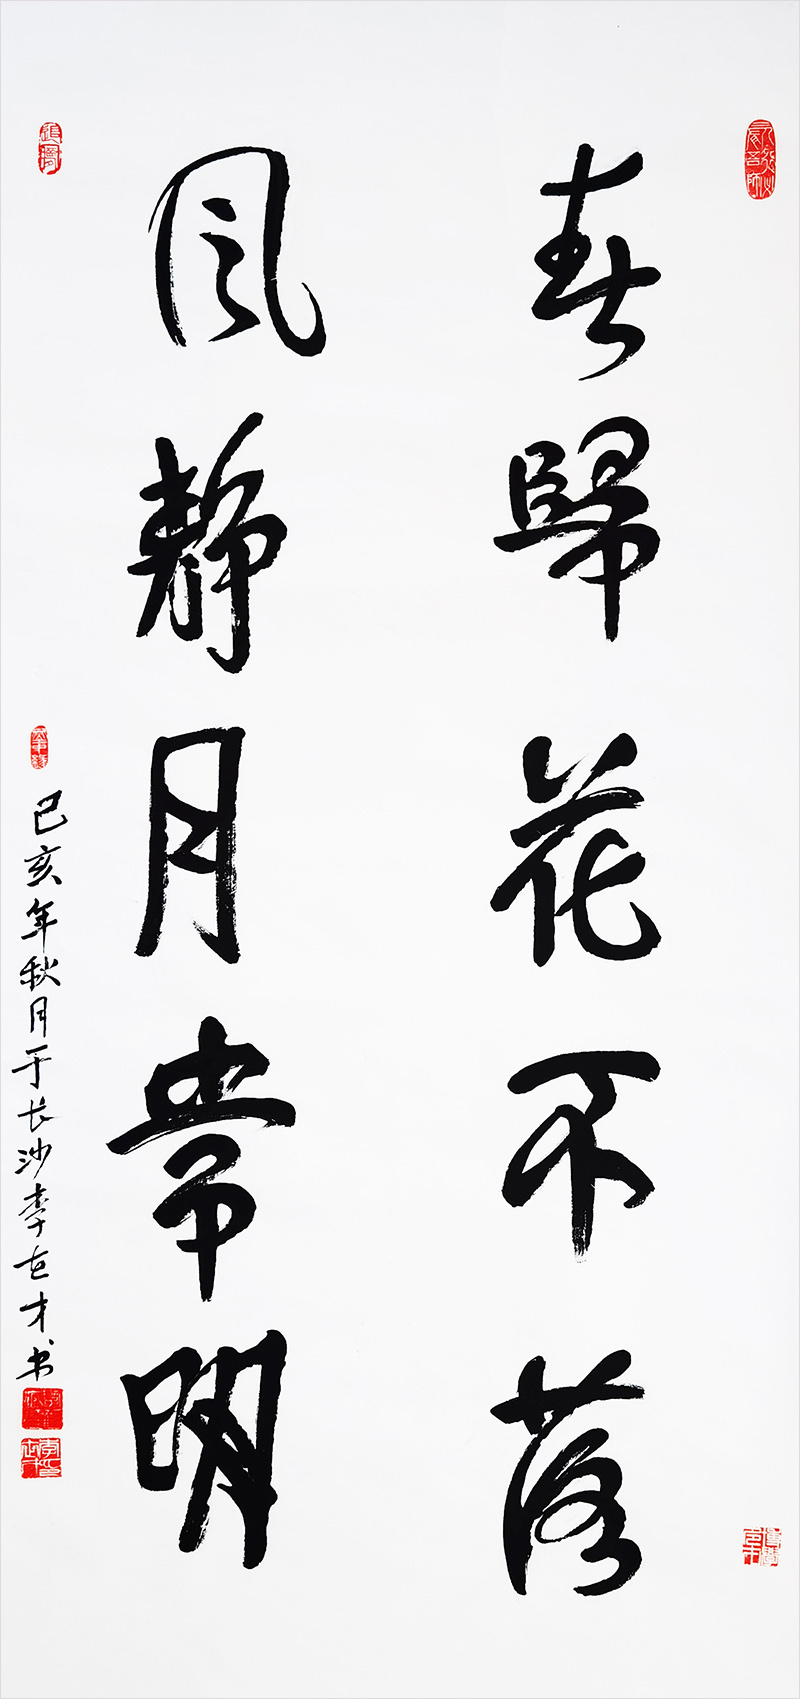 春歸花不落
風静月常明
己亥年秋月于长沙李在才书